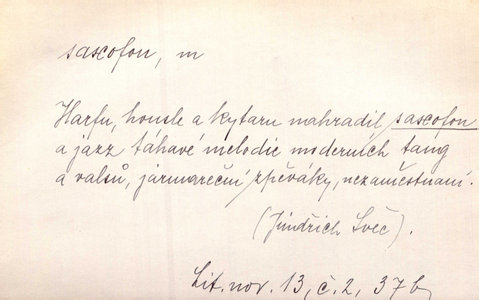 saxofon, m
Harfu, housle a kytaru nahradil saxofon
a jazz táhavé melodie moderních tang
a valsů, jármareční zpěváky, nezaměstnaní.
(Jindřich Švec).
Lit. nov. 13, č. 2, 37b